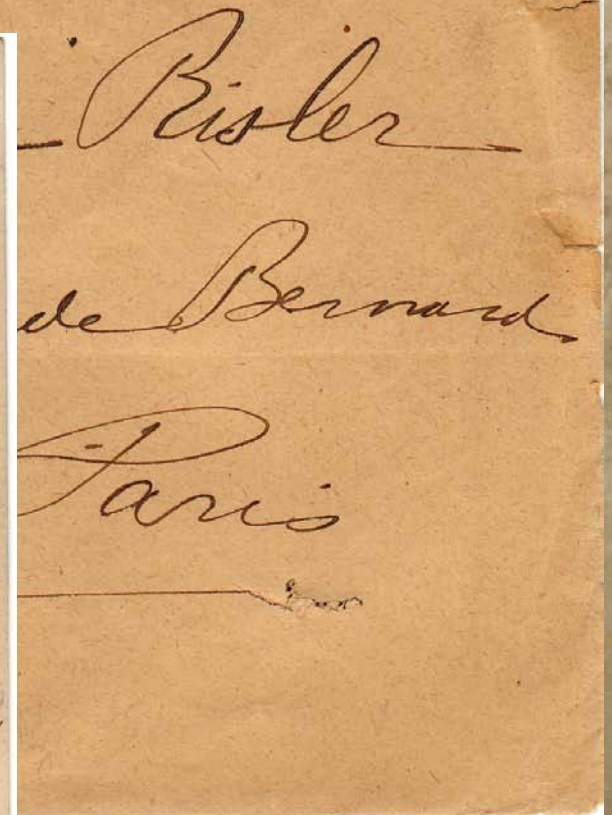 Risler
de Bernard
Paris